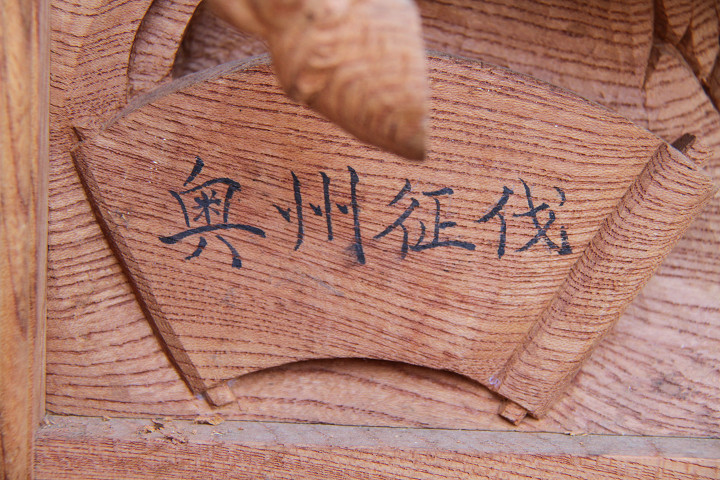 奥州征伐